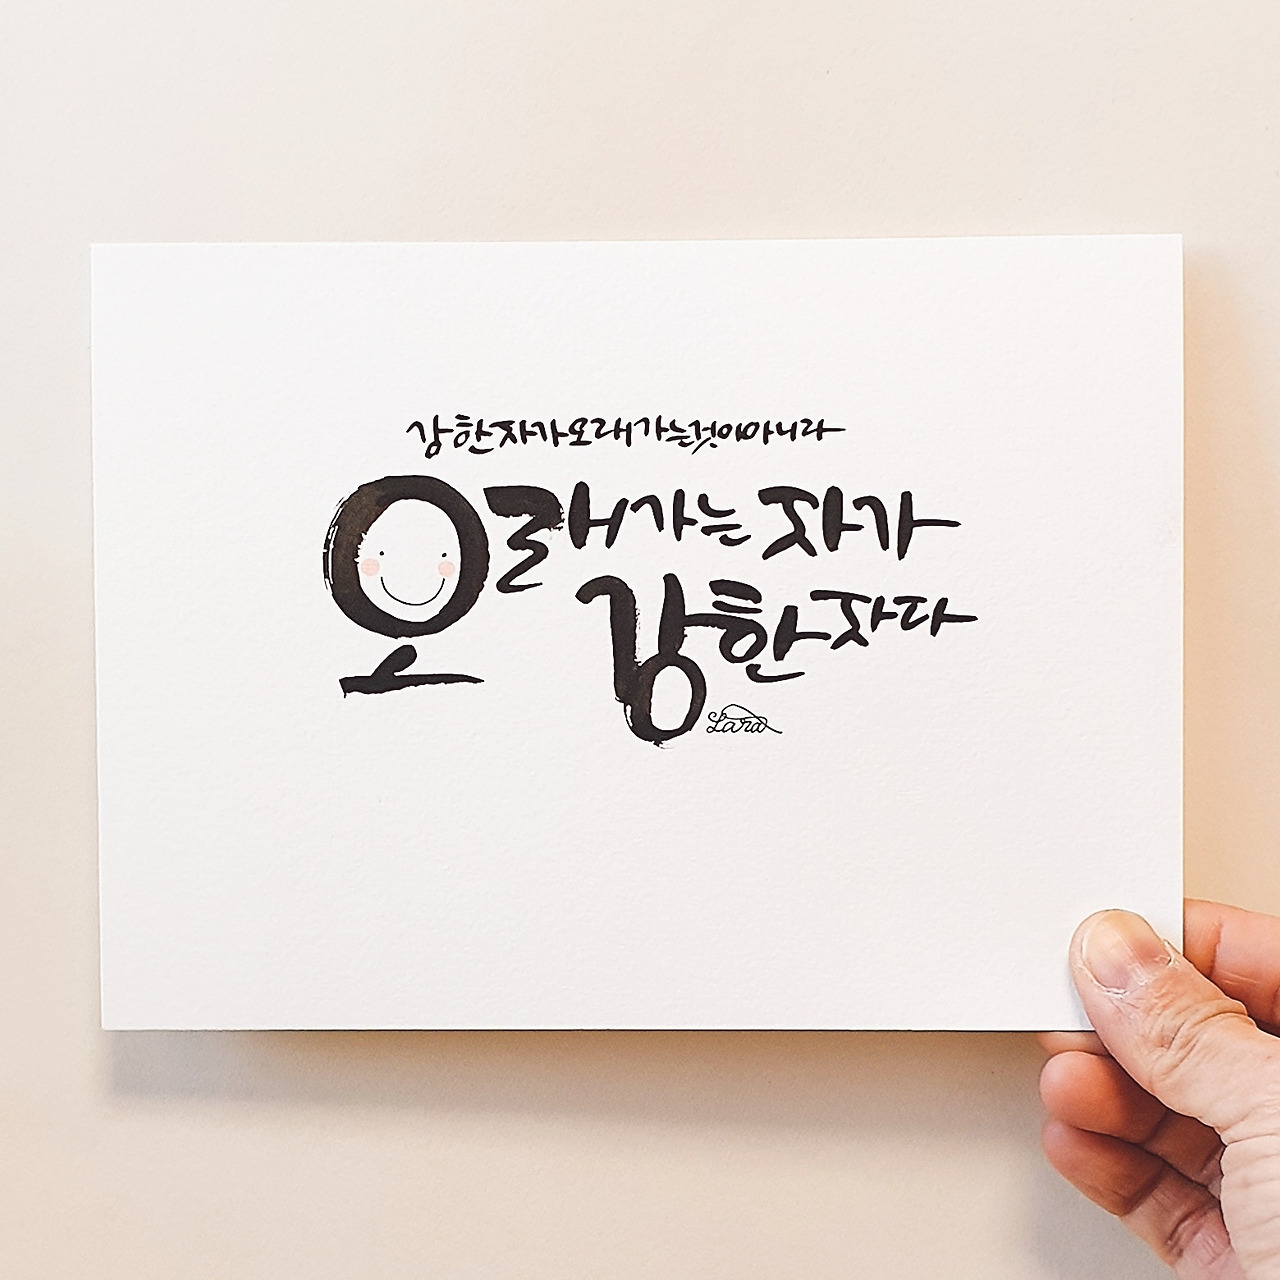 강한자가오래가는것이아니라
오래가는자가
강한자다
Lara